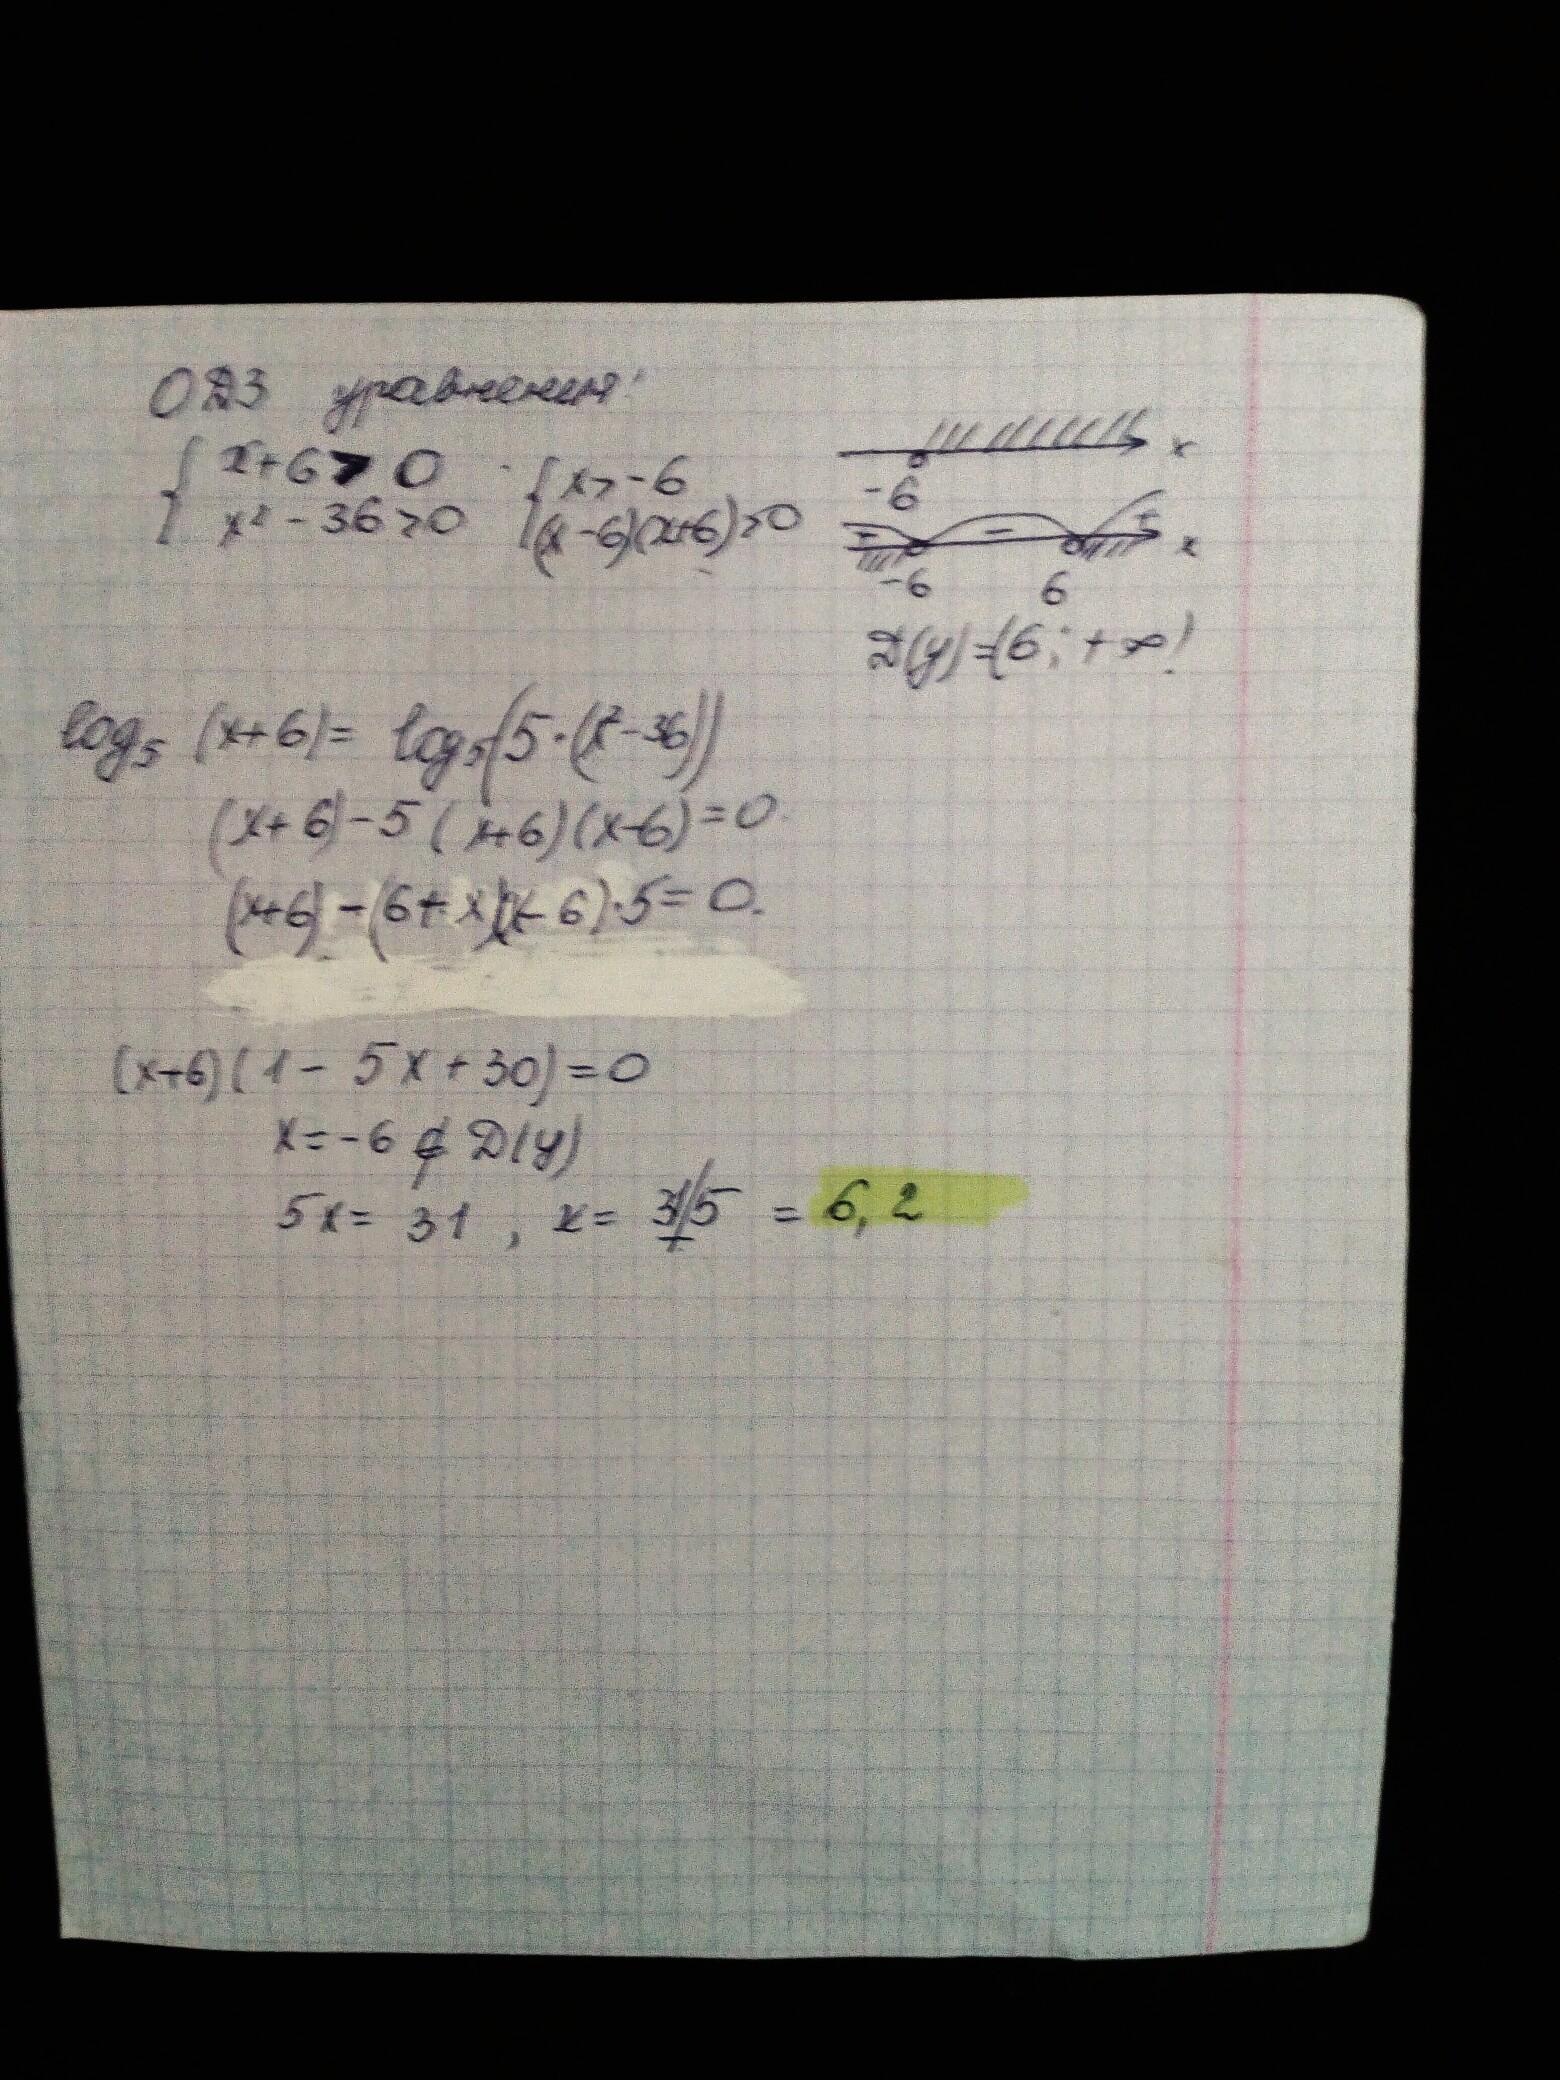 ОДЗ уравнения:
{ x+6 > 0 { x > -6 x
x² - 36 > 0 (x-6)(x+6) > 0 -6
+ - + x
-6 6
D(y) = (6; +∞)
log₅ (x+6) = log₅(5·(x²-36))
(x+6) - 5(x+6)(x-6) = 0
(x+6) - (6+x)(x-6)·5 = 0.
(x+6)(1 - 5x + 30) = 0
x = -6 ∉ D(y)
5x = 31, x = 31/5 = 6,2